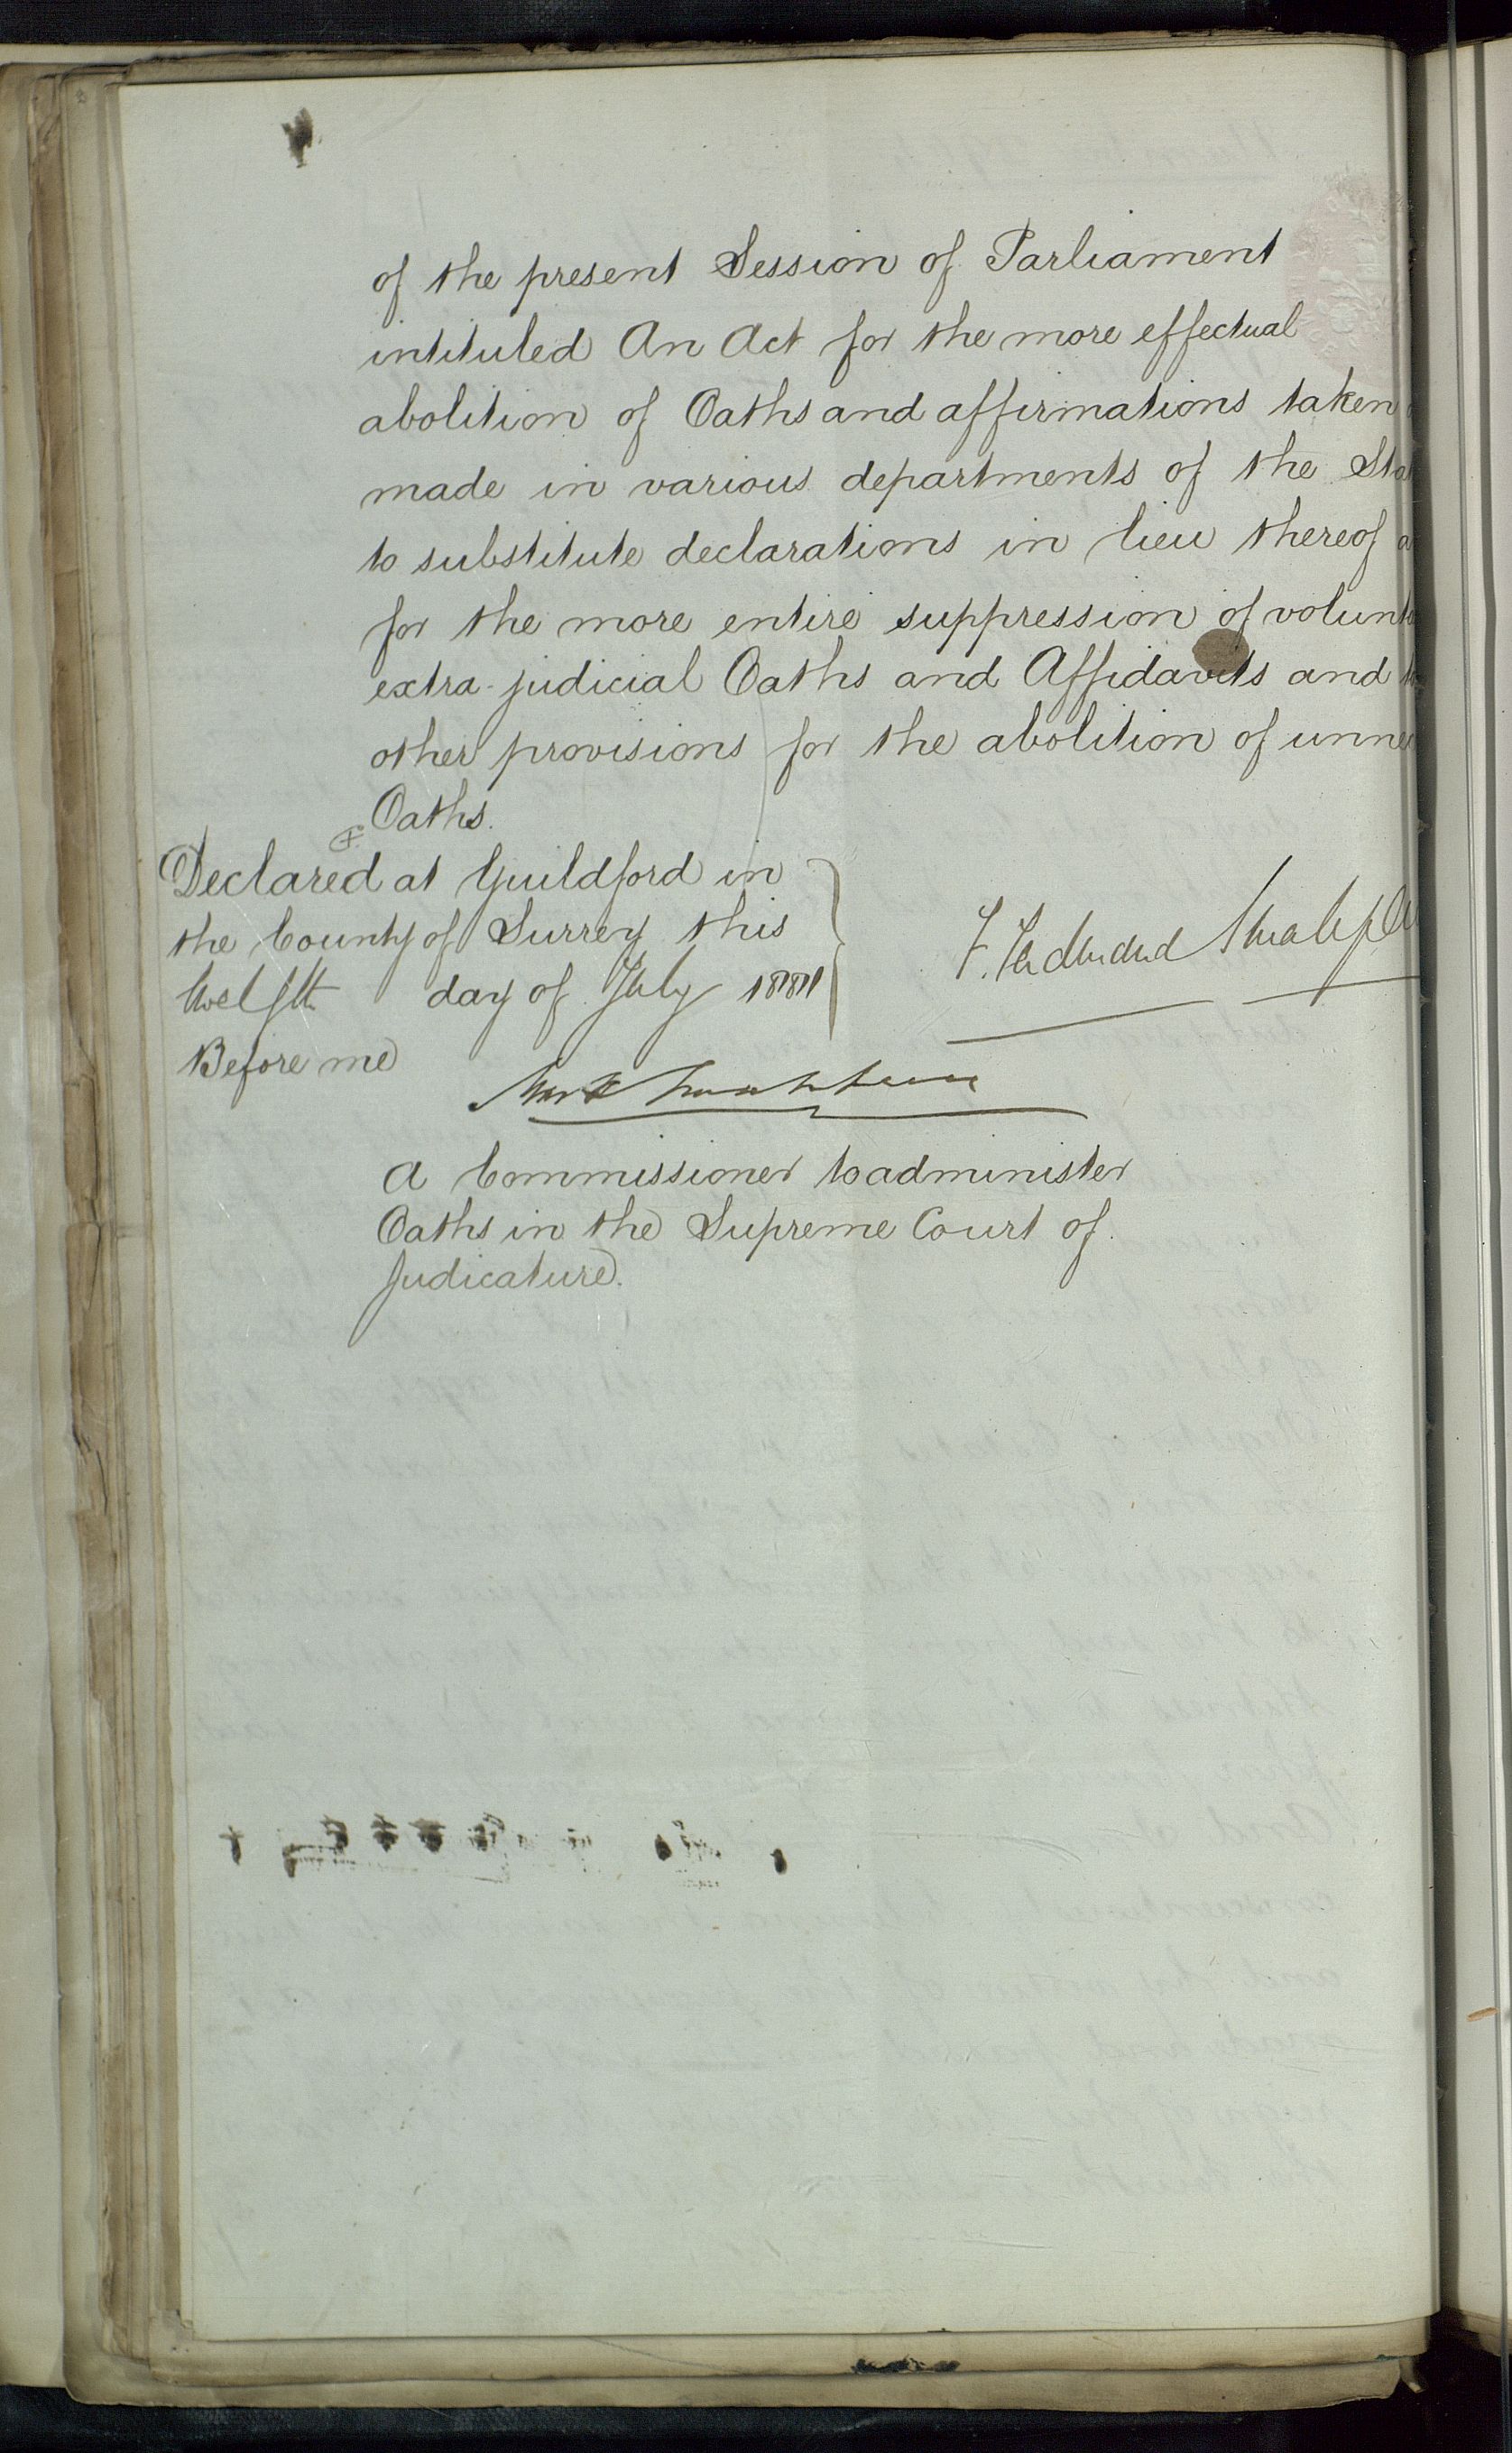 of the present Session of Parliament
intituled An Act for the more effectual
abolition of Oaths and affirmations taken
made in various departments of the Sta
to substitute declarations in lieu thereof a
for the more entire suppression of volunt
extra-judicial Oaths and Affidavits and
other provisions for the abolition of unne
Oaths.
Declared at Guildford in
the County of Surrey this
twelfth day of July 1881
Before me
A Commissioner to administer
Oaths in the Supreme Court of
Judicature.